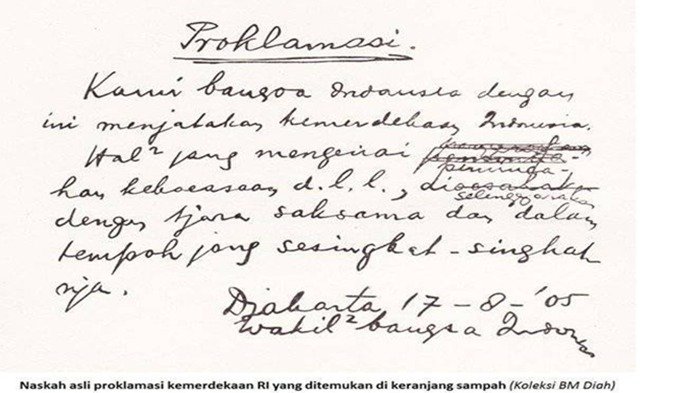 Proklamasi.
Kami bangsa Indonesia dengan
ini menjatakan kemerdekaan Indonesia.
Hal² jang mengenai
peminda-
han keboeasaan d.l.l.,
diselenggarakan
dengan tjara saksama dan dalam
tempoh jang sesingkat-singkat
nja.
Djakarta 17-8-'05
Wakil² bangsa Indonesia
Naskah asli proklamasi kemerdekaan RI yang ditemukan di keranjang sampah (Koleksi BM Diah)